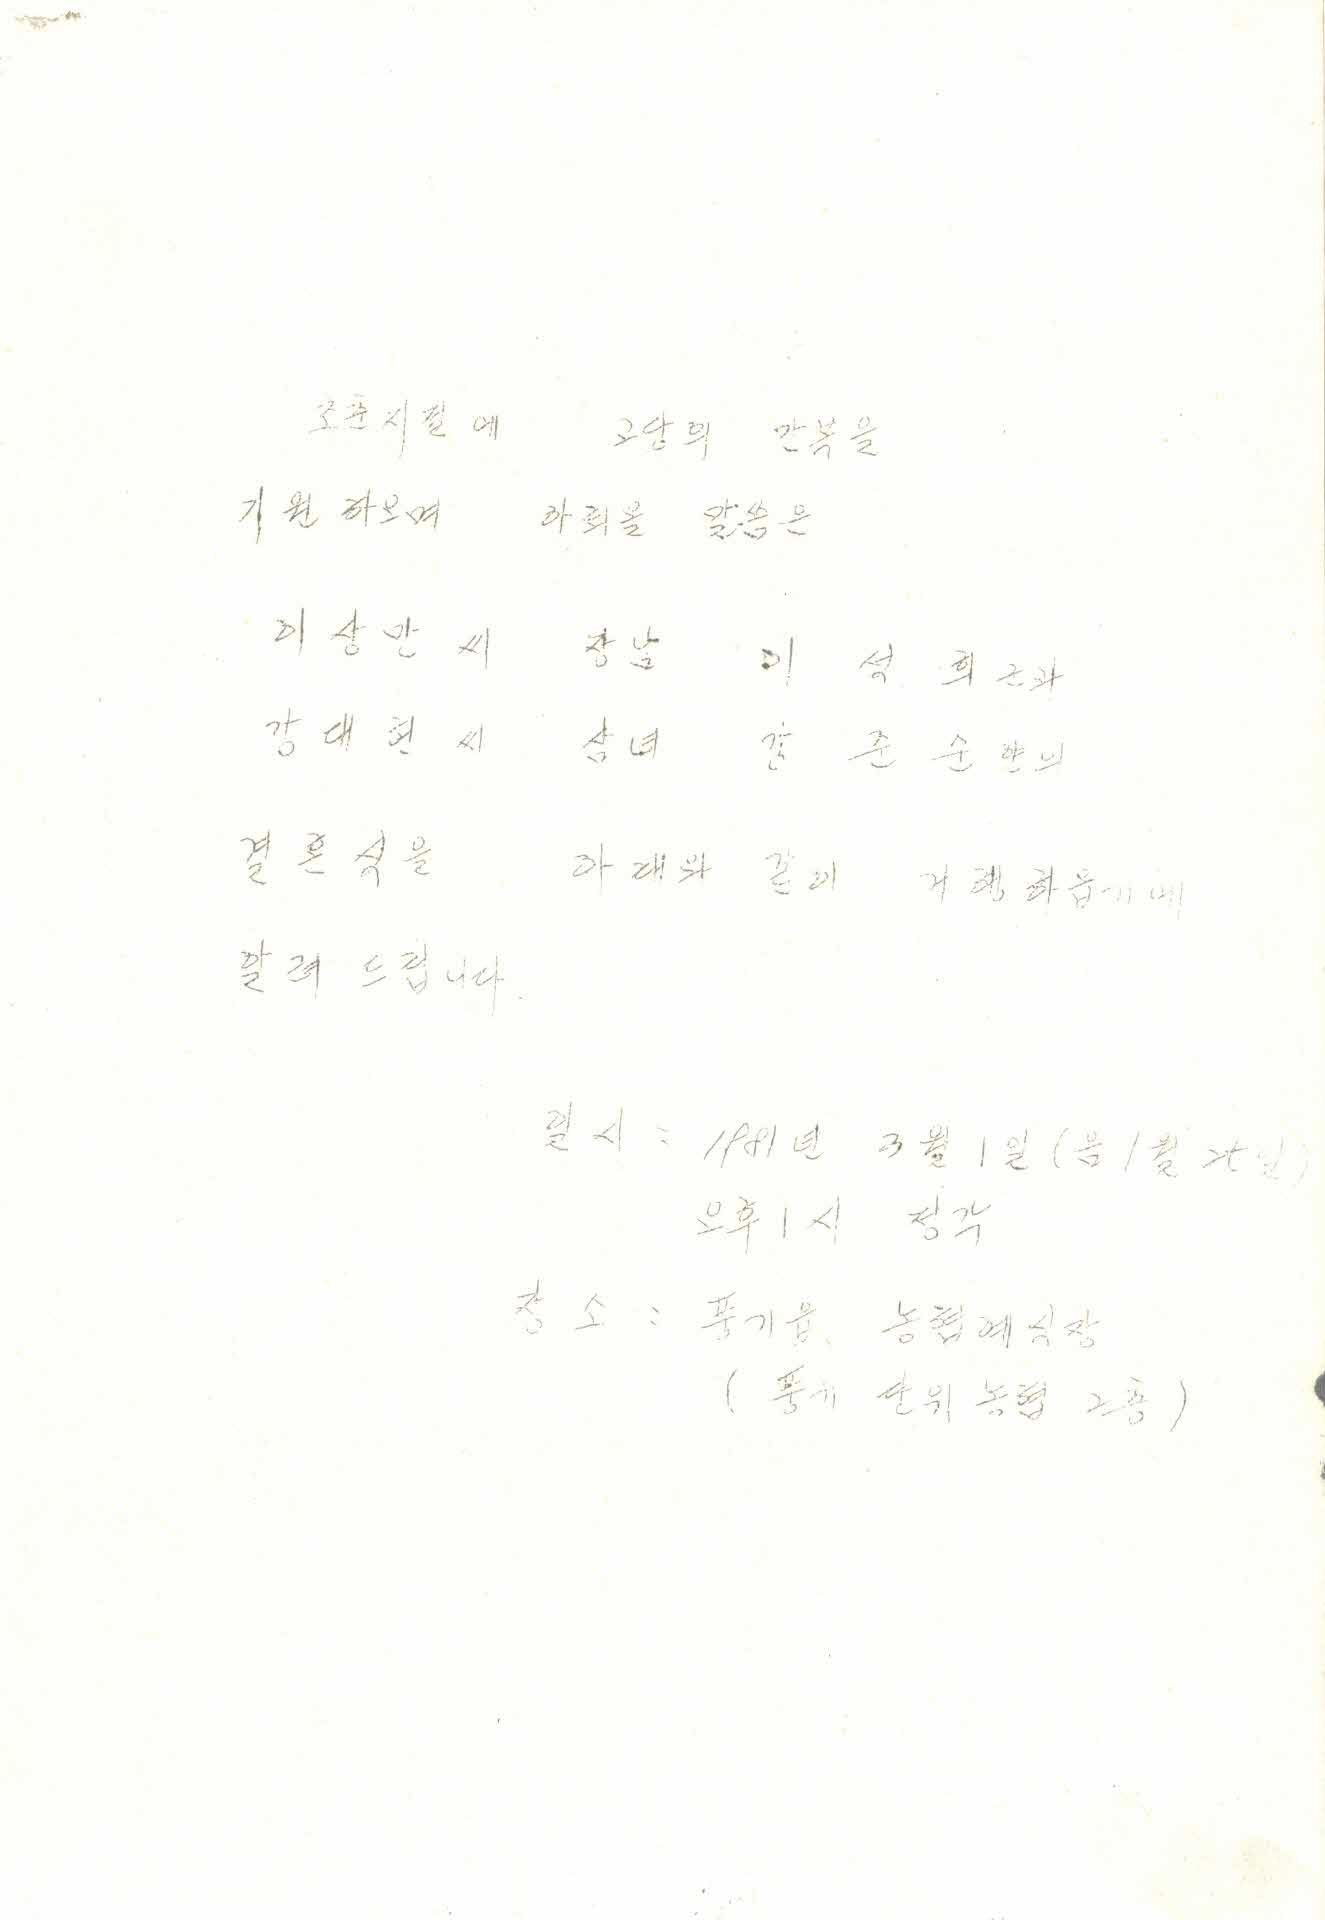 조춘시절에 고당의 만복을
기원하오며 아뢰올 말씀은
이상만씨 장남 이석희군과
강대현씨 삼녀 강준순양의
결혼식을 아래와 같이 거행하옵기에
알려 드립니다.
일시: 1981년 3월 1일(음1월 25일)
오후1시 정각
장소: 풍기읍, 농협예식장
(풍기 단위농협 2층)